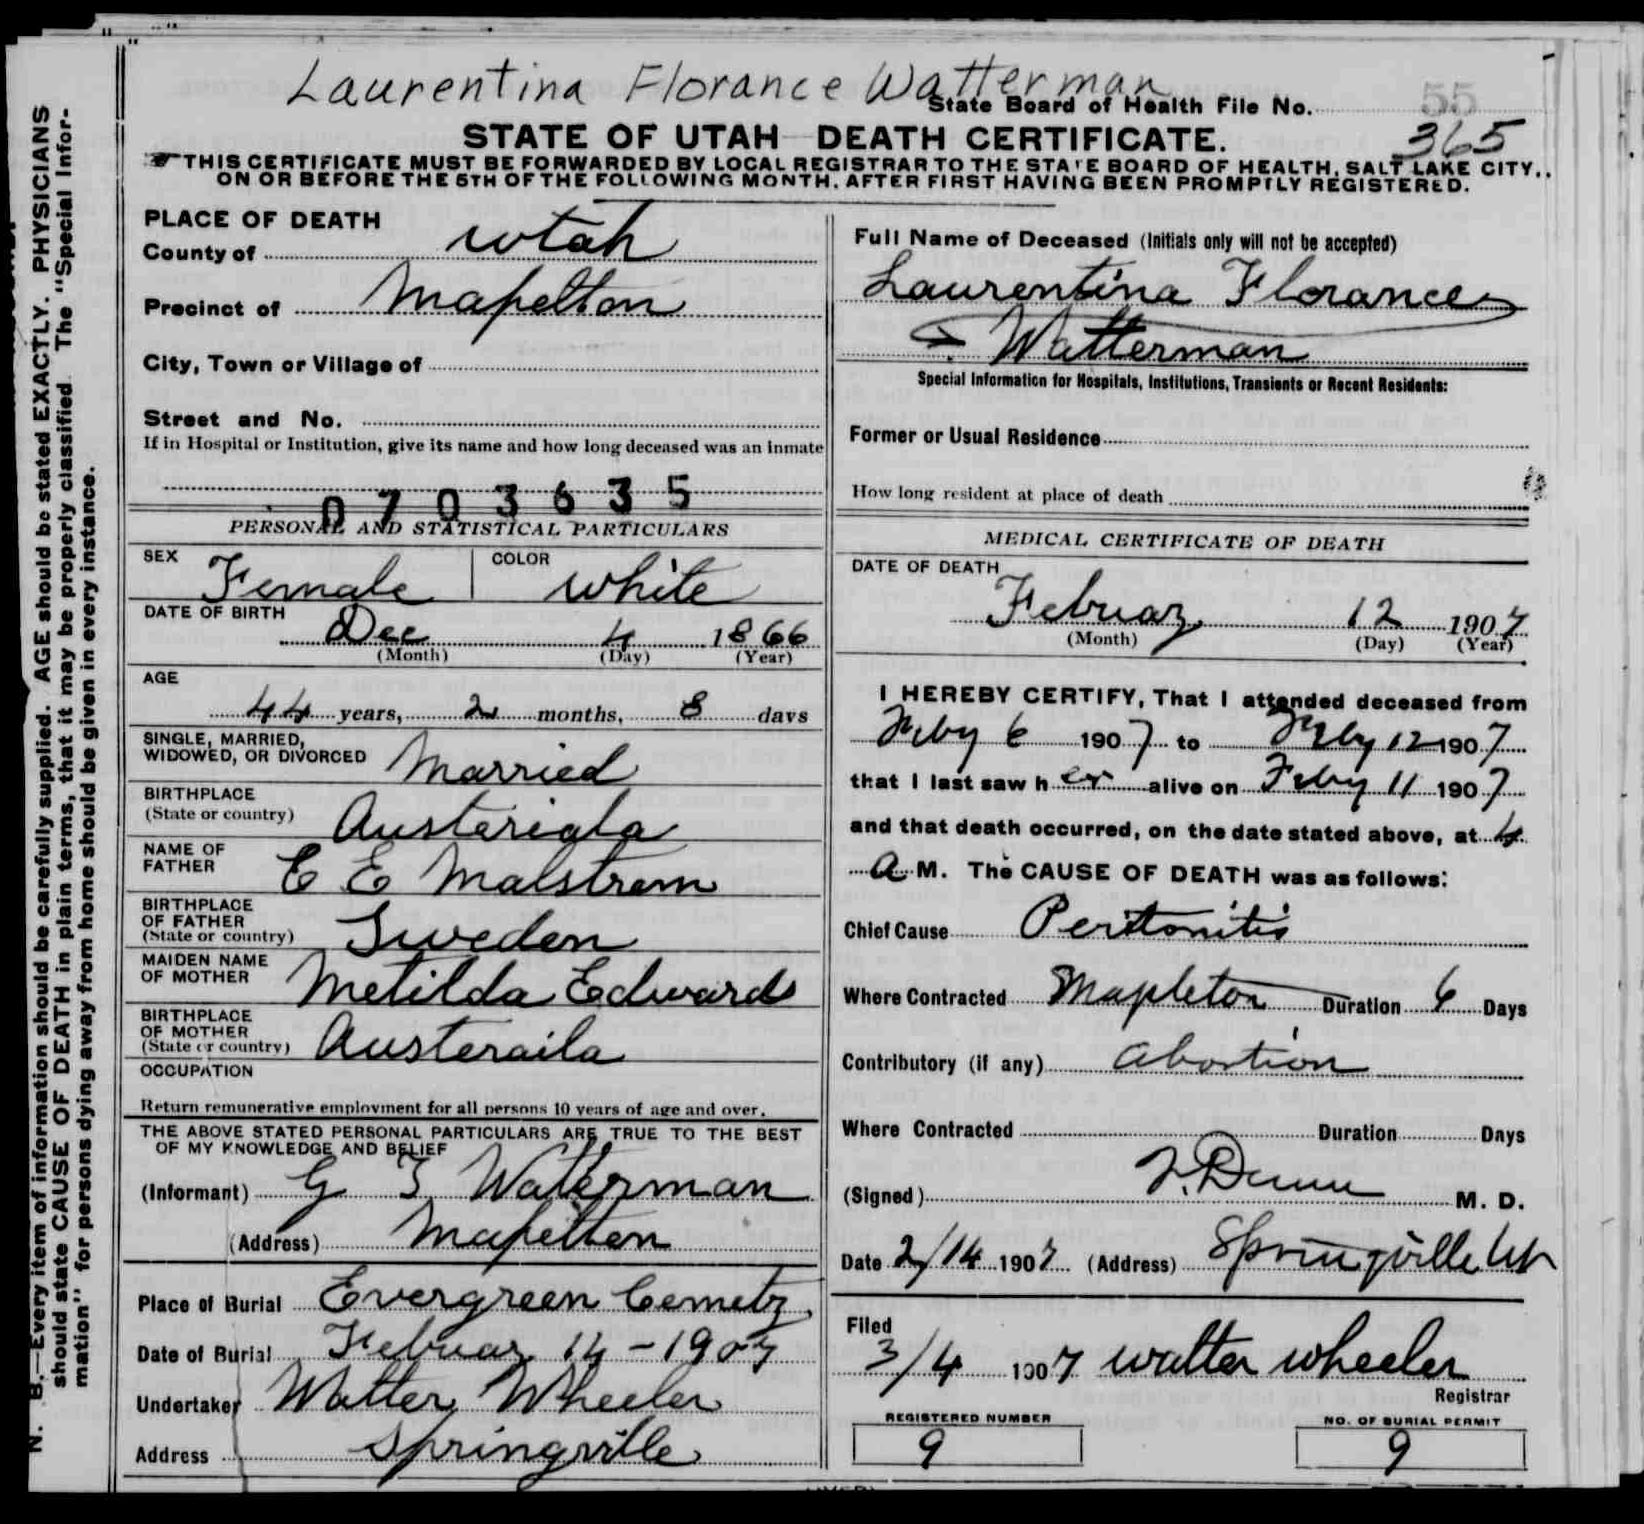 Laurentina Florance Watterman
State Board of Health File No. 55
365
STATE OF UTAH DEATH CERTIFICATE.
THIS CERTIFICATE MUST BE FORWARDED BY LOCAL REGISTRAR TO THE STATE BOARD OF HEALTH, SALT LAKE CITY,
ON OR BEFORE THE 5TH OF THE FOLLOWING MONTH, AFTER FIRST HAVING BEEN PROMPTLY REGISTERED.
N. B.—Every item of information should be carefully supplied. AGE should be stated EXACTLY. PHYSICIANS
should state CAUSE OF DEATH in plain terms, that it may be properly classified. The "Special Infor-
mation" for persons dying away from home should be given in every instance.
PLACE OF DEATH
County of Utah
Precinct of Mapelton
City, Town or Village of
Street and No.
If in Hospital or Institution, give its name and how long deceased was an inmate
0703635
PERSONAL AND STATISTICAL PARTICULARS
SEX Female COLOR White
DATE OF BIRTH Dec 4 1866
(Month) (Day) (Year)
AGE
44 years, 2 months, 8 days
SINGLE, MARRIED,
WIDOWED, OR DIVORCED Married
BIRTHPLACE
(State or country) Austeriala
NAME OF
FATHER E E Malstrem
BIRTHPLACE
OF FATHER
(State or country) Sweden
MAIDEN NAME
OF MOTHER Metilda Edwards
BIRTHPLACE
OF MOTHER
(State or country) Austeraila
OCCUPATION
Return remunerative employment for all persons 10 years of age and over.
THE ABOVE STATED PERSONAL PARTICULARS ARE TRUE TO THE BEST
OF MY KNOWLEDGE AND BELIEF
(Informant) G T Watterman
(Address) Mapelton
Place of Burial Evergreen Cemetry
Date of Burial Februay 14-1907
Undertaker Walter Wheeler
Address Springville
Full Name of Deceased (Initials only will not be accepted)
Laurentina Florance
Watterman
Special Information for Hospitals, Institutions, Transients or Recent Residents:
Former or Usual Residence
How long resident at place of death
MEDICAL CERTIFICATE OF DEATH
DATE OF DEATH
Februay 12 1907
(Month) (Day) (Year)
I HEREBY CERTIFY, That I attended deceased from
Feby 6 1907 to Feby 12 1907
that I last saw her alive on Feby 11 1907
and that death occurred, on the date stated above, at 4
a M. The CAUSE OF DEATH was as follows:
Chief Cause Peritonitis
Where Contracted Mapleton Duration 6 Days
Contributory (if any) Abortion
Where Contracted Duration Days
(Signed) F. Dunn M. D.
Date 2/14 1907 (Address) Springville Ut
Filed
3/4 1907 Walter Wheeler
Registrar
REGISTERED NUMBER
9
NO. OF BURIAL PERMIT
9